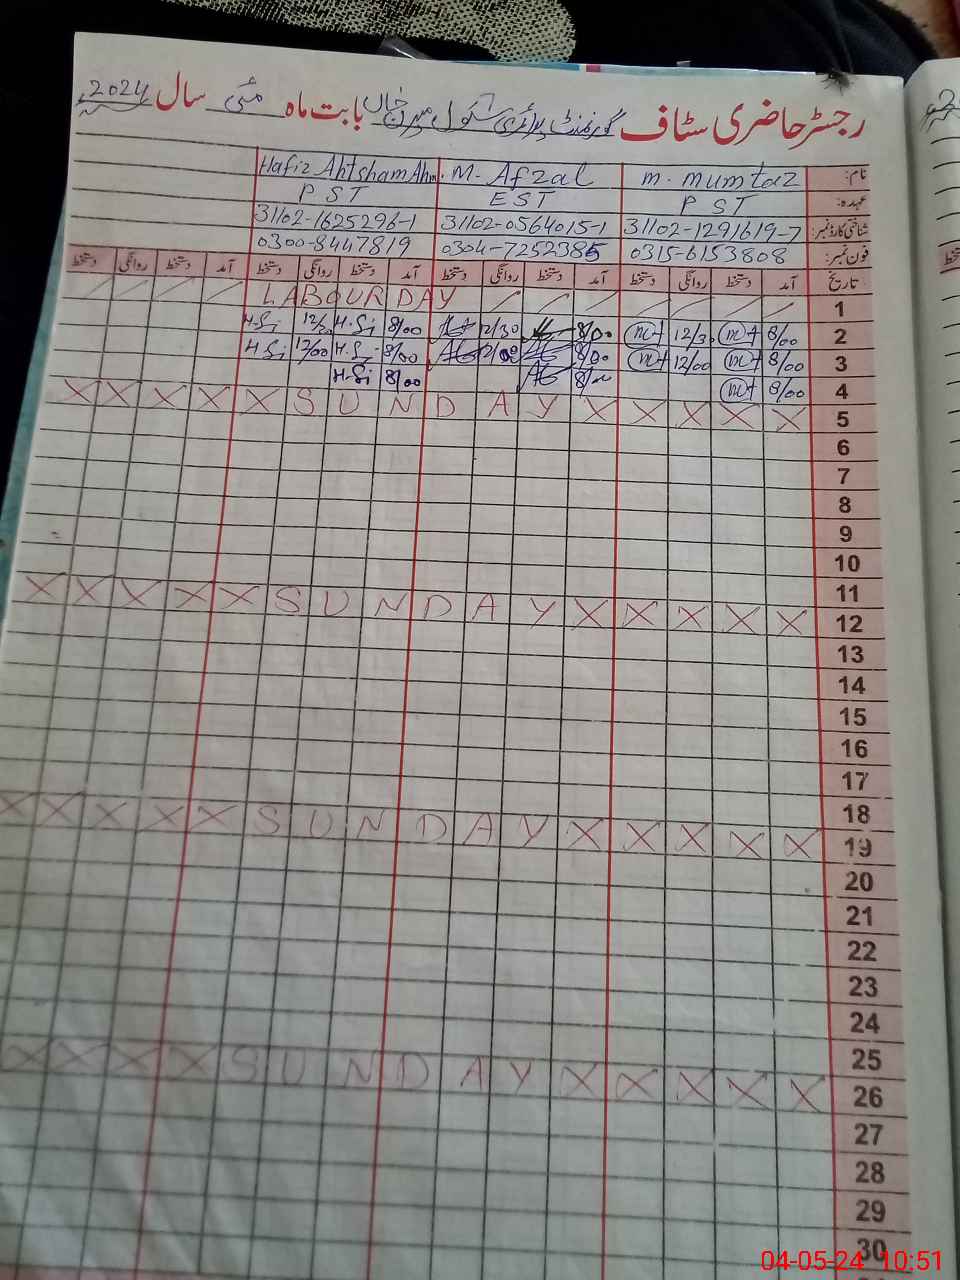 رجسٹر حاضری سٹاف گورنمنٹ پرائمری سکول میرن خاں بابت ماہ مئی سال 2024
نام: m. mumtaz M. Afzal Hafiz Ahtsham Ahm.
عہدہ: PST EST PST
شناختی کارڈ نمبر: 31102-1291619-7 31102-0564015-1 31102-1625296-1
فون نمبر: 0315-6153808 0304-7252385 0300-8447819
تاریخ آمد دستخط روانگی دستخط آمد دستخط روانگی دستخط آمد دستخط روانگی دستخط آمد دستخط روانگی دستخط
1 LABOUR DAY
2 8/00 mt 12/30 mt 8/00 12/30 8/00 H.Si 12/30 H.Si
3 8/00 mt 12/00 mt 8/00 12/00 8/00 H.Si 12/00 H.Si
4 8/00 mt 8/00 8/00 H.Si
5 X X X X X S U N D A Y X X X X X
6
7
8
9
10
11
12 X X X X X S U N D A Y X X X X X
13
14
15
16
17
18
19 X X X X X S U N D A Y X X X X X
20
21
22
23
24
25
26 X X X X S U N D A Y X X X X X
27
28
29
30
04-05-24 10:51